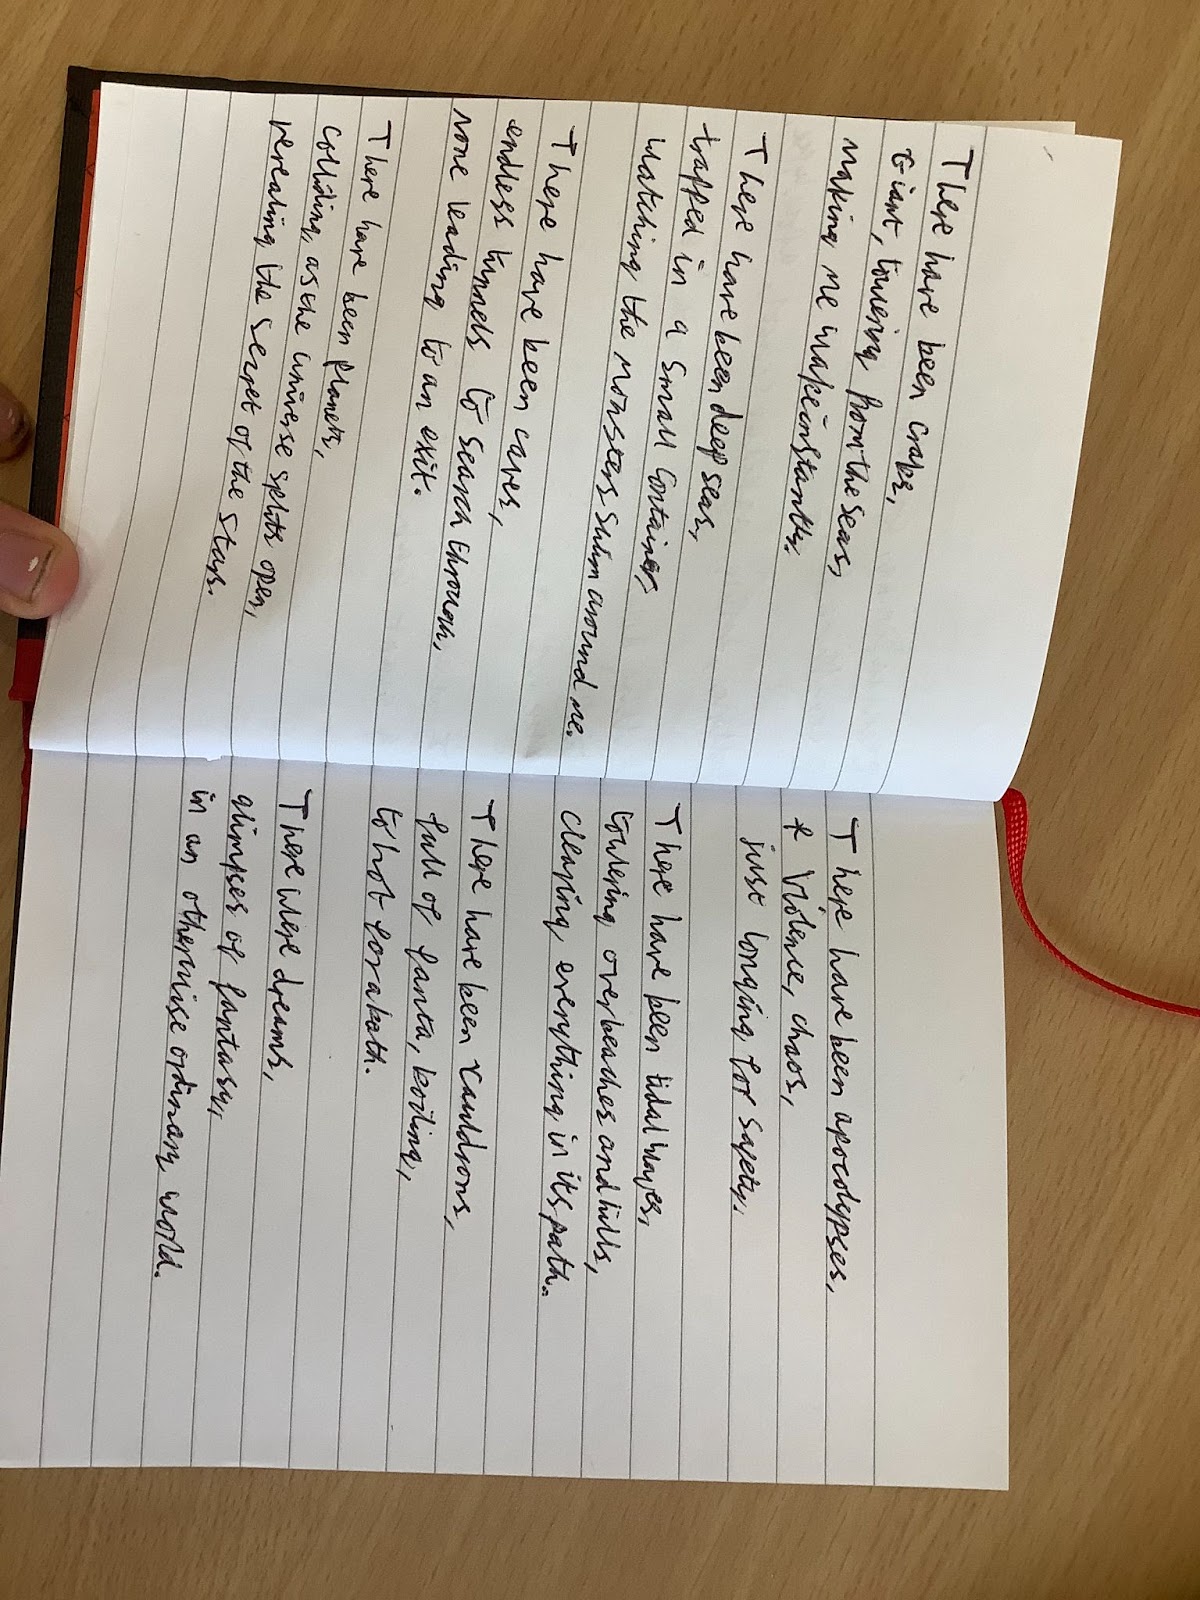 There have been crabs,
Giant, towering from the seas,
making me wake instantly.
There have been deep seas,
trapped in a small container,
watching the monsters swim around me.
There have been caves,
endless tunnels to search through,
none leading to an exit.
There have been planets,
colliding, as the universe splits open,
revealing the secret of the stars.
There have been apocolypses,
* Violence, chaos,
just longing for safety.
There have been tidal waves,
towering over beaches and hills,
clearing everything in its path.
There have been cauldrons,
full of fanta, boiling,
to hot for a bath.
There were dreams,
glimpses of fantasy,
in an otherwise ordinary world.